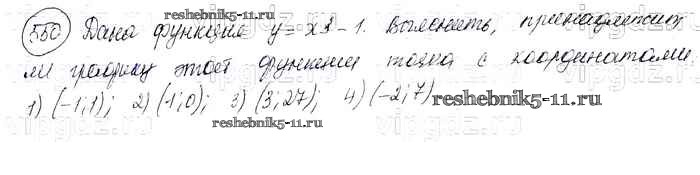 reshebnik5-11.ru
550 Дана функция y = x3 - 1. Выяснить, принадлежит
ли графику этой функции точка с координатами.
1) (-1; 1); 2) (1; 0); 3) (3; 27); 4) (-2; 7)
reshebnik5-11.ru
reshebnik5-11.ru